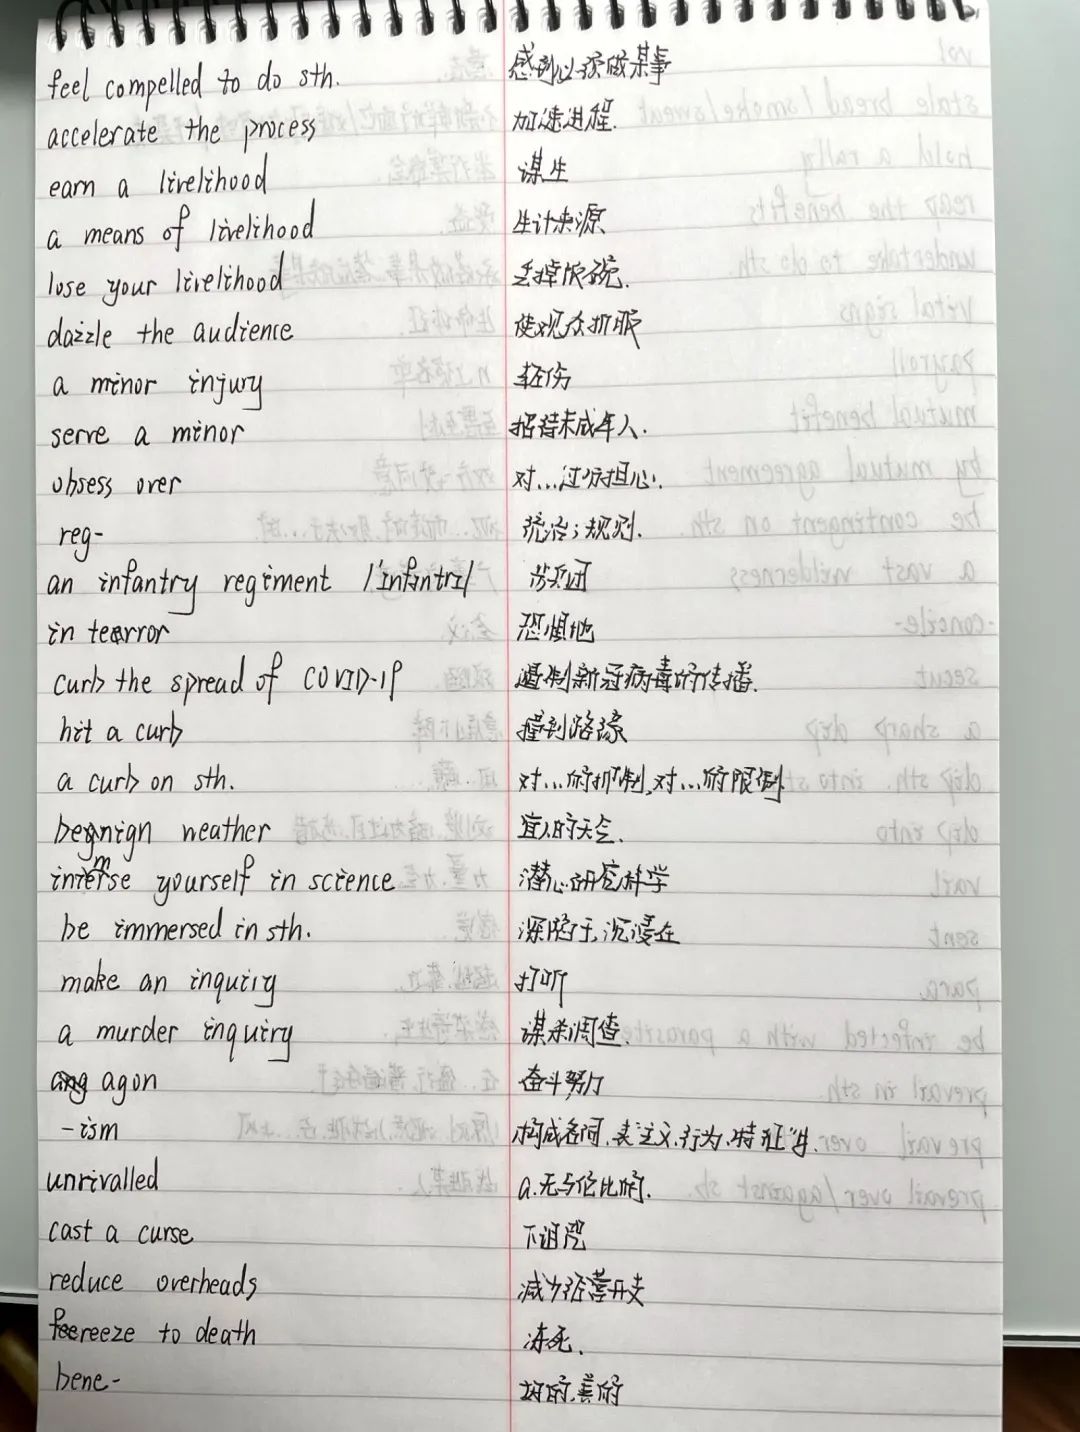 feel compelled to do sth. 感到必须做某事
accelerate the process 加速进程.
earn a livelihood 谋生
a means of livelihood 生计来源
lose your livelihood 丢掉饭碗.
dazzle the audience 使观众折服
a minor injury 轻伤
serve a minor 招待未成年人.
obsess over 对...过分担心.
reg- 统治;规则.
an infantry regiment /'infəntri/ 步兵团
in terror 恐惧地
curb the spread of COVID-19 遏制新冠病毒的传播.
hit a curb 撞到路缘
a curb on sth. 对...的抑制,对...的限制
benign weather 宜人的天气.
immerse yourself in science 潜心研究科学
be immersed in sth. 深陷于,沉浸在
make an inquiry 打听
a murder inquiry 谋杀调查.
agon 奋斗努力
-ism 构成名词.表"主义,行为,特征"等.
unrivalled a.无与伦比的.
cast a curse 下诅咒
reduce overheads 减少经营开支
freeze to death 冻死.
bene- 好的,善的